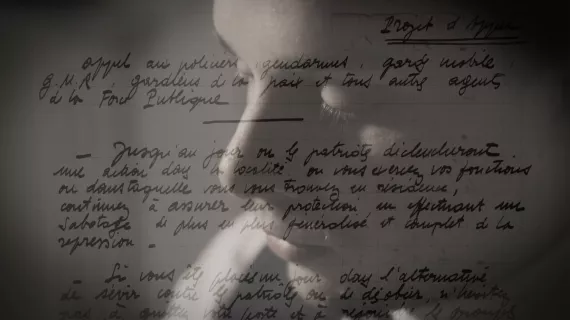 Projet d'Appel
Appel aux policiers, gendarmes, garde mobile
G.M.R., gardiens de la paix et tous autres agents
de la Force Publique
— Jusqu'au jour où les patriotes déclencheront
une action dans la localité où vous exercez vos fonctions
ou dans laquelle vous vous trouvez en résidence,
continuez à assurer leur protection en effectuant un
Sabotage de plus en plus généralisé et complet de la
repression —
— Si vous êtes placés un jour dans l'alternative
de sévir contre les patriotes ou de désobéir, n'hésitez
pas à quitter votre poste et à rejoindre le